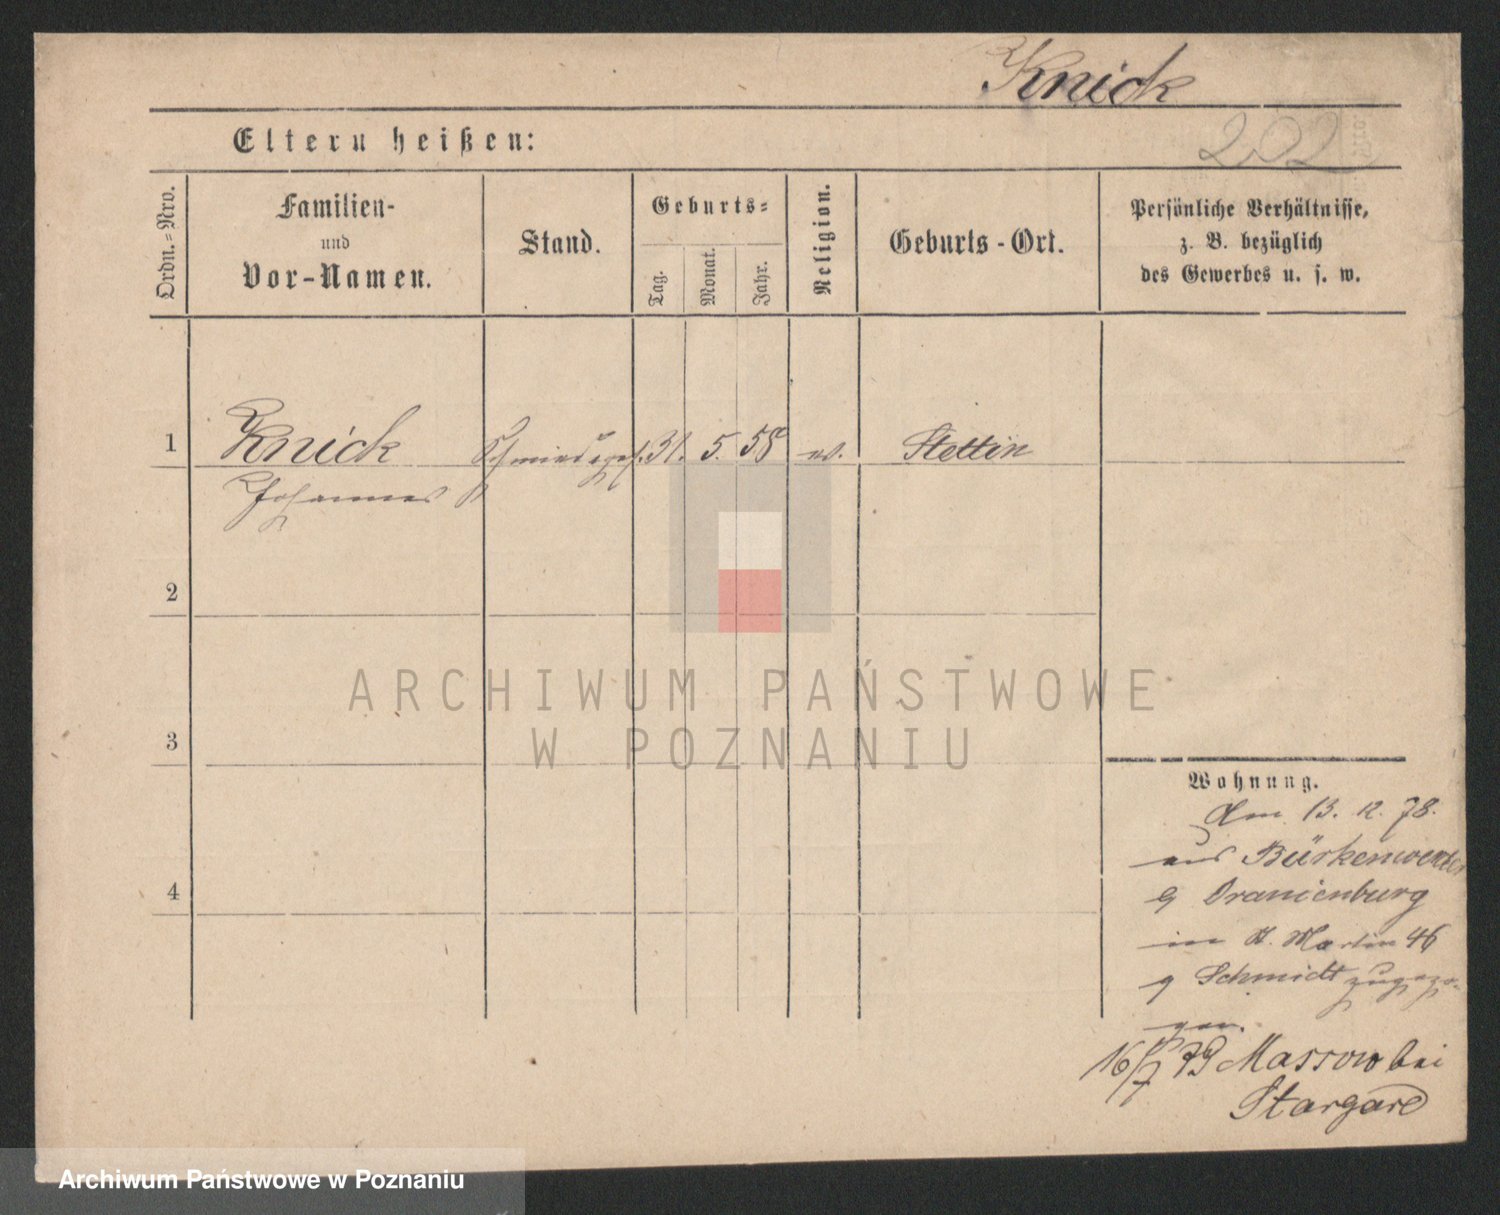 Knick
202
Eltern heißen:
Ordn.=Nro.
Familien-
und
Vor-Namen.
Stand.
Geburts=
Tag.
Monat.
Jahr.
Religion.
Geburts-Ort.
Persönliche Verhältnisse,
z. B. bezüglich
des Gewerbes u. s. w.
1
Knick
Johannes
Schmiedeges.
31.
5.
58
ev.
Stettin
2
3
4
ARCHIWUM PAŃSTWOWE
W POZNANIU
Wohnung.
Am 13. 12. 78.
aus
Oranienburg
in St. Martin 46
Schmidt zugezo-
gen.
16/7 79 Massow bei
Stargard
Archiwum Państwowe w Poznaniu